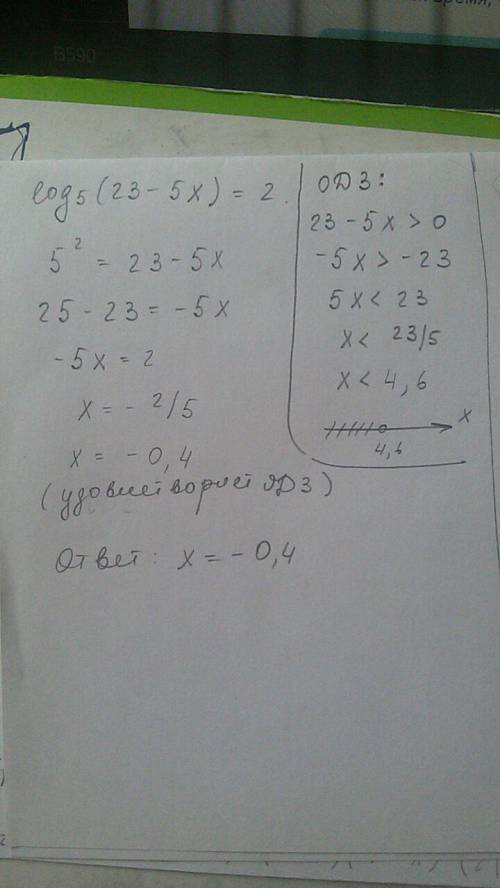 B590
log₅(23 - 5x) = 2.
5² = 23 - 5x
25 - 23 = - 5x
-5x = 2
x = - 2/5
x = - 0,4
(удовлетворяет ОДЗ)
Ответ: x = - 0,4
ОДЗ:
23 - 5x > 0
-5x > -23
5x < 23
x < 23/5
x < 4,6
x
4,6